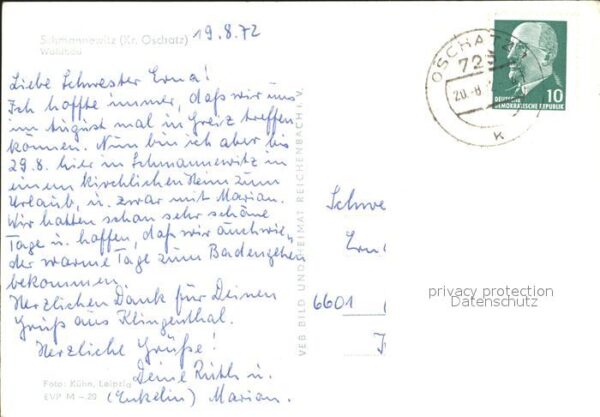 Schmannewitz (Kr. Oschatz)
Waldbad
19.8.72
Liebe Schwester Erna!
Ich hoffte immer, daß wir uns
im August mal in Greiz treffen
können. Nun bin ich aber bis
29.8. hier in Schmannewitz in
einem kirchlichen Heim zum
Urlaub, u. zwar mit Marian.
Wir hatten schon sehr schöne
Tage u. hoffen, daß wir auch wie-
der warme Tage zum Badengehen
bekommen.
Herzlichen Dank für Deinen
Gruß aus Klingenthal.
Herzliche Grüße!
Deine Ruth u.
(Enkelin) Marian.
Foto: Kühn, Leipzig
EVP M -20
VEB BILD UND HEIMAT REICHENBACH i. V.
OSCHATZ
20.-8.
K
10
DEUTSCHE
DEMOKRATISCHE REPUBLIK
Schwe
Ern
6601
privacy protection
Datenschutz